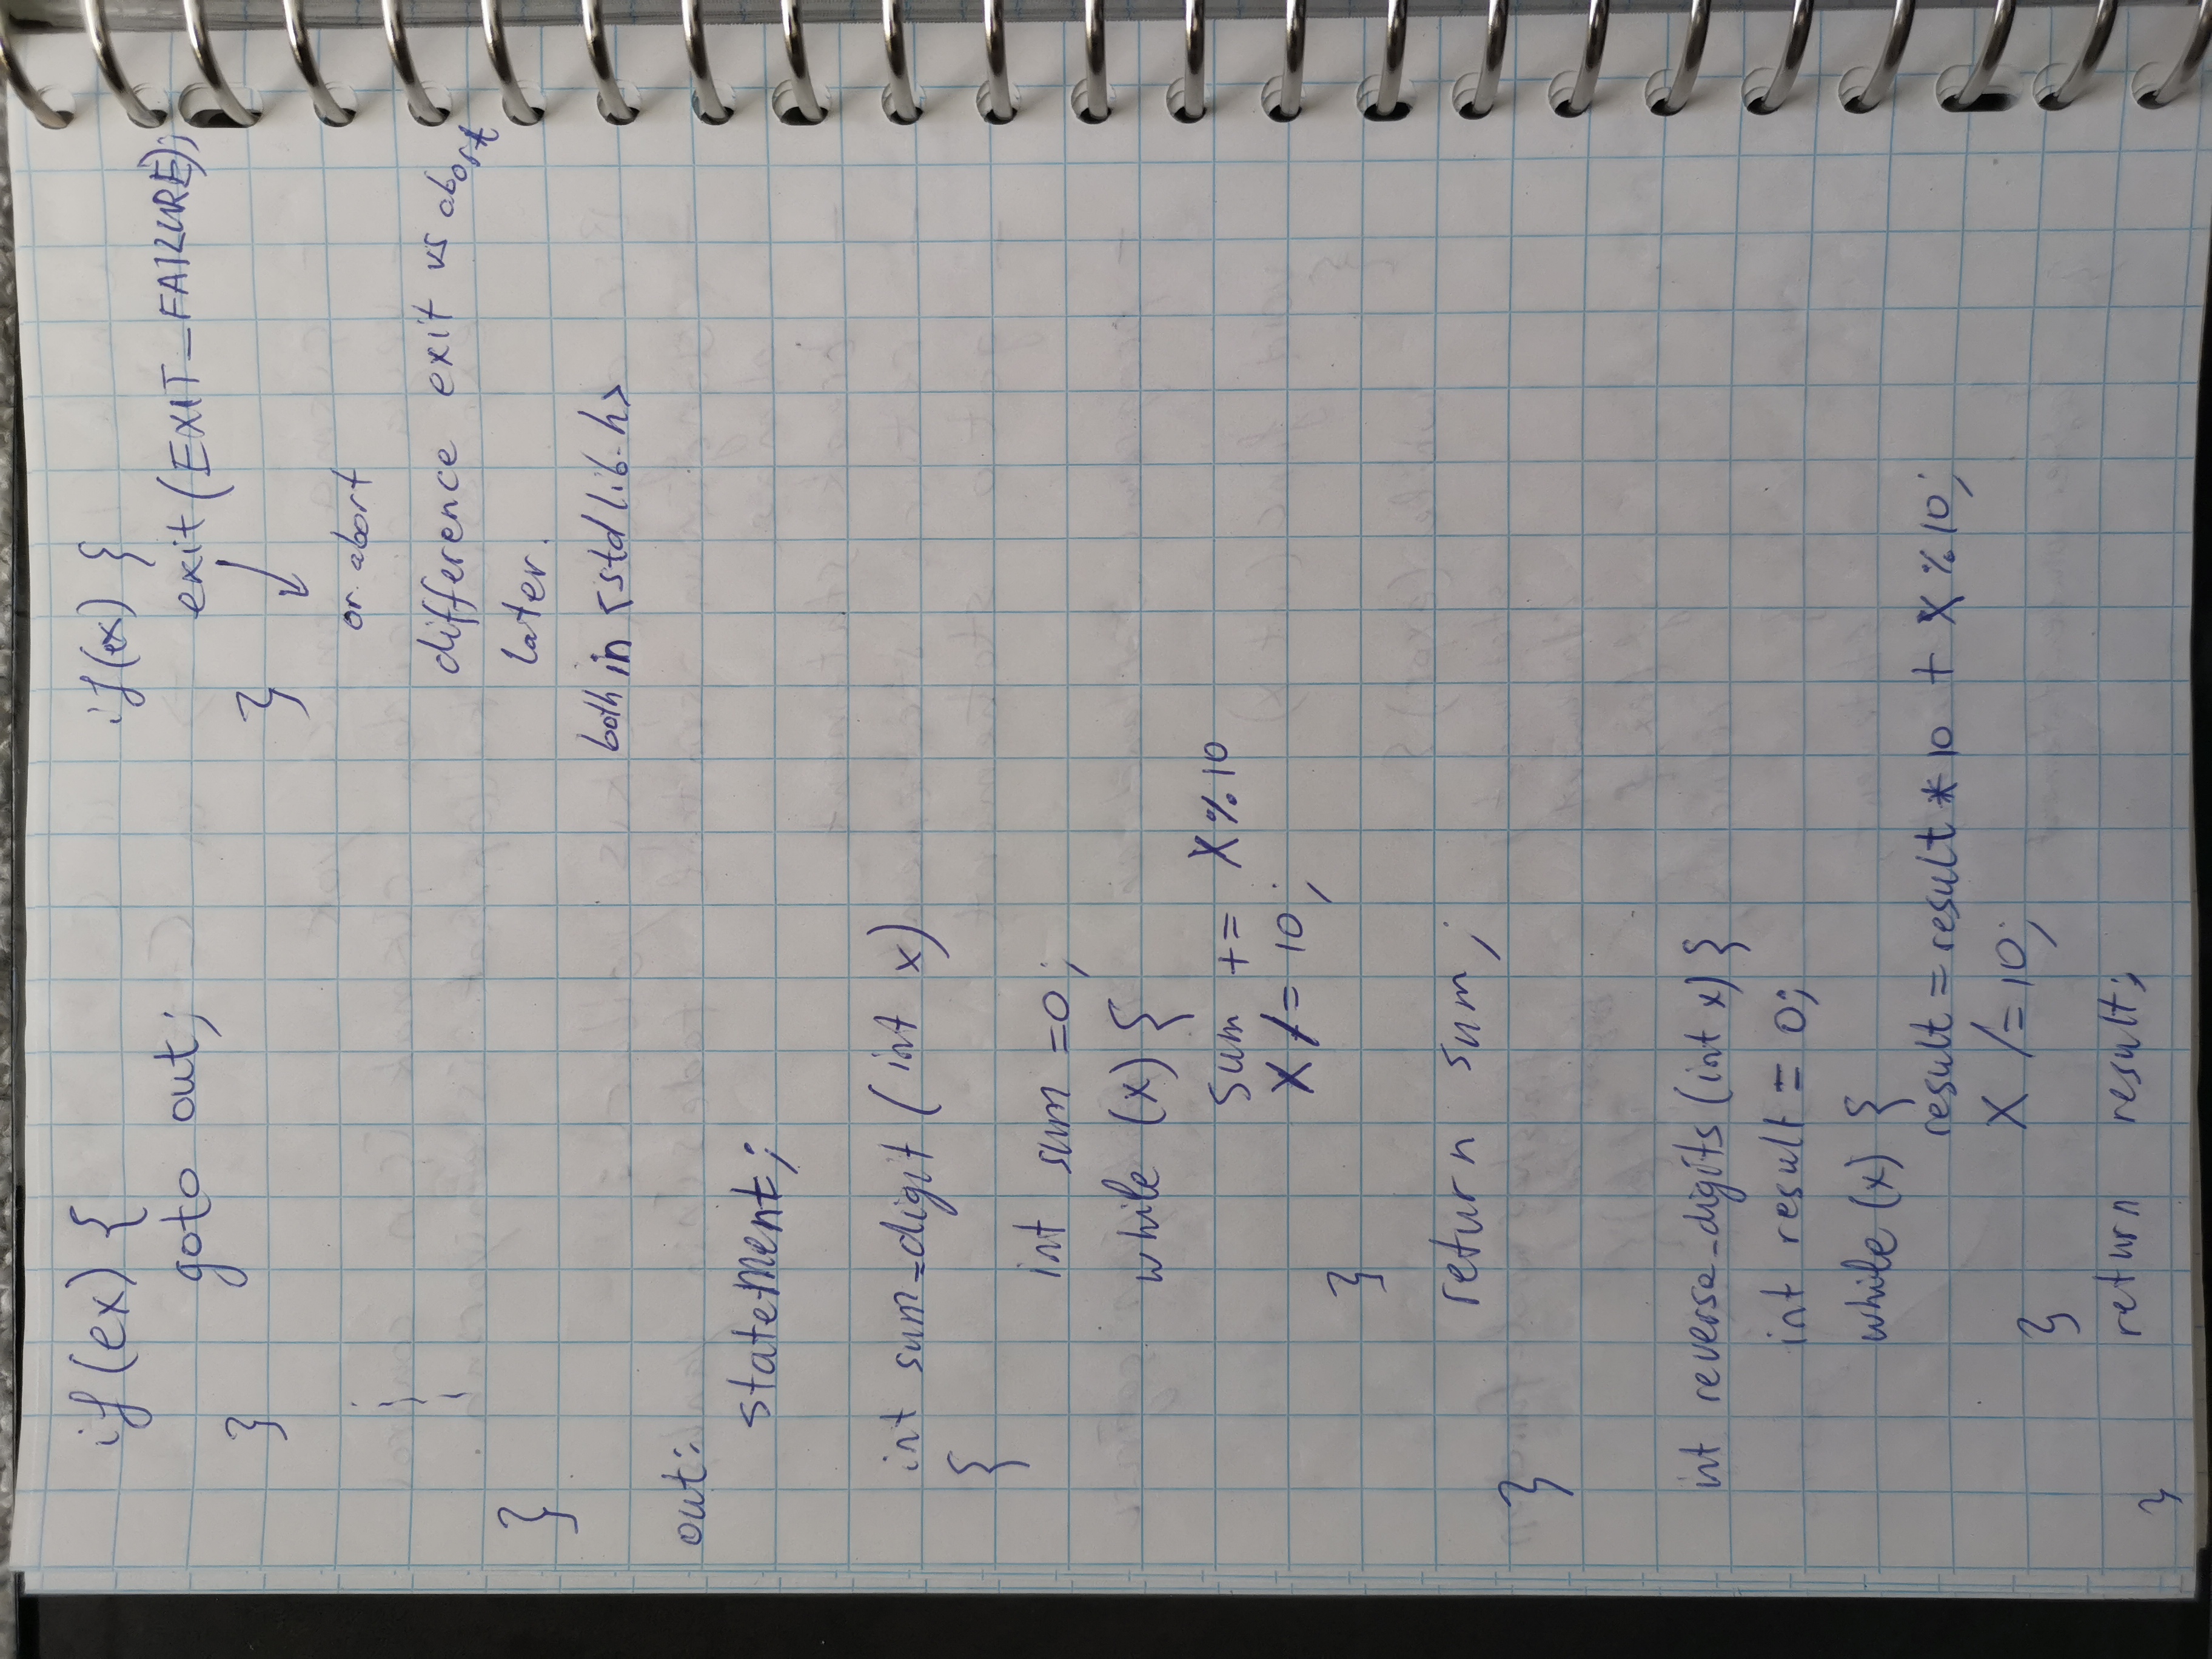 if(ex) {
goto out;
}
if(ex) {
exit(EXIT_FAILURE);
}
or abort
difference exit vs abort
later.
both in <stdlib.h>
}
out:
statement;
int sum_digit (int x)
{
int sum =0;
while (x) {
sum += x%10
x /= 10;
}
return sum;
}
int reverse_digits (int x) {
int result = 0;
while (x) {
result = result * 10 + x % 10;
x /= 10;
}
return result;
}